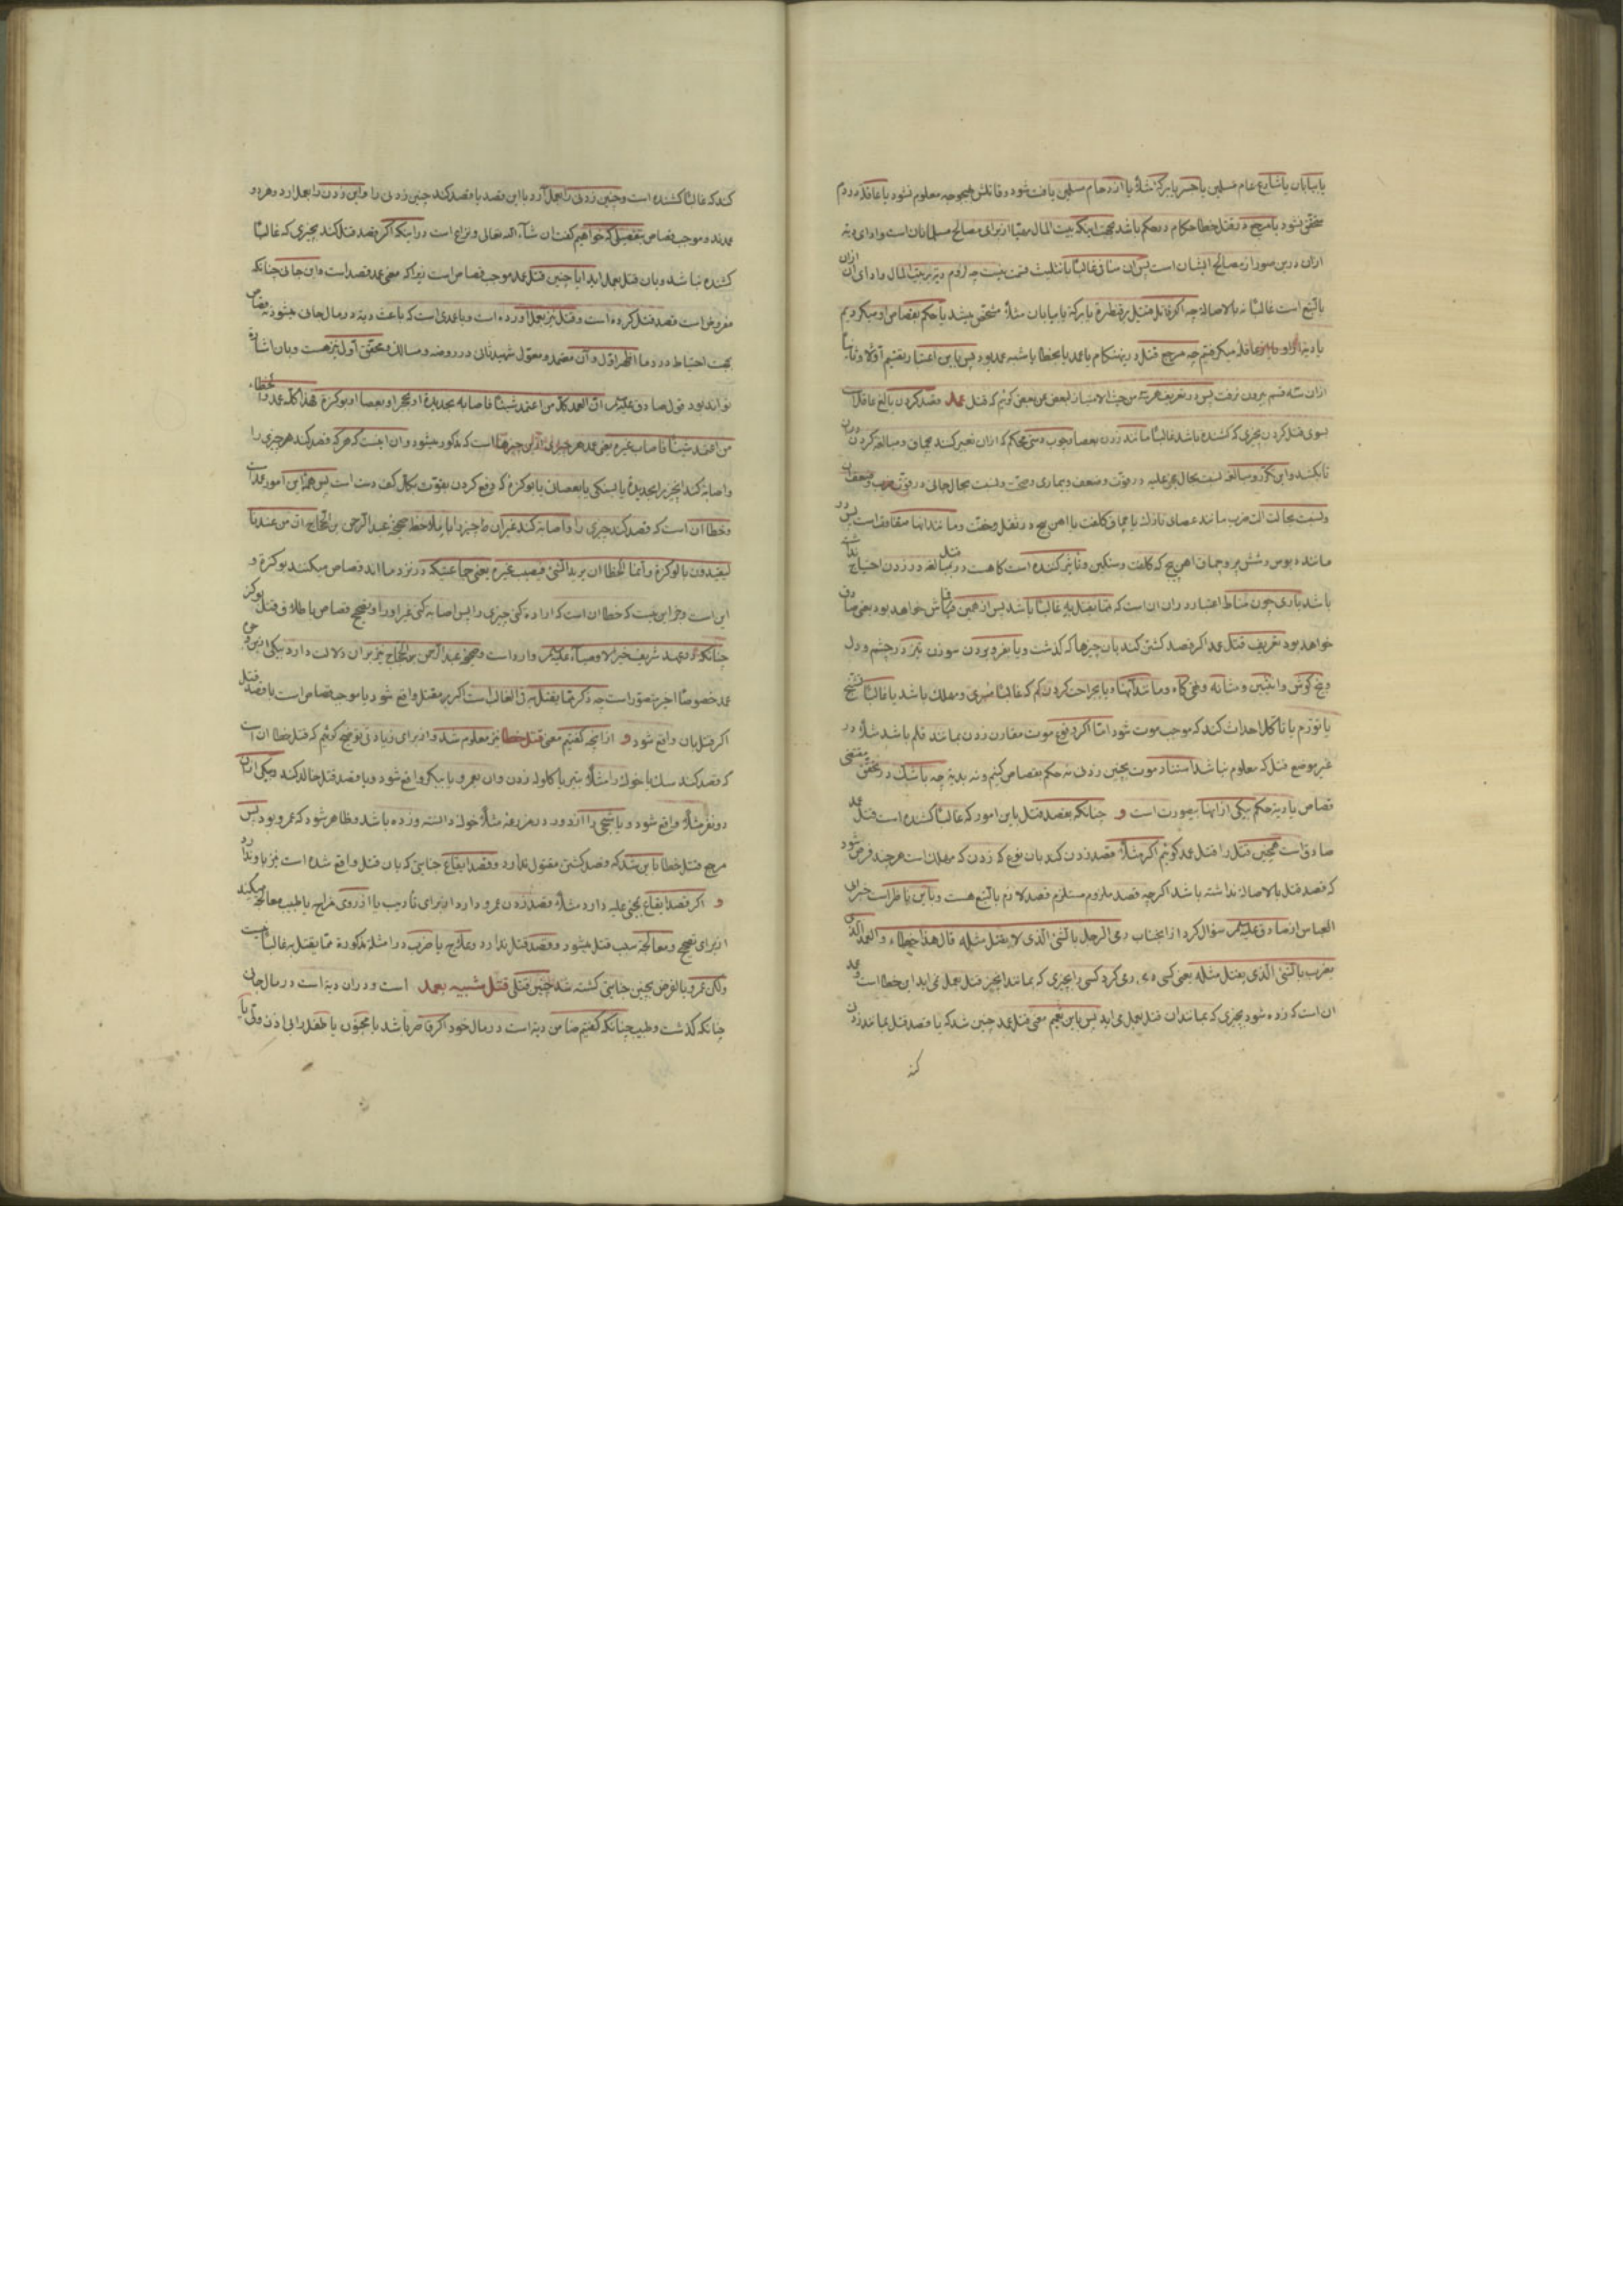 یا بیابان یا شارع عام مسلمین یا جسر یا برکه مثلاً یا ازدحام مسلمین یافت شود و قاتلش بهیچوجه معلوم نشود یا عاقله مردم
متحقق نشود یا مرجع در قتل خطا حکام در حکم باشد بجهت اینکه بیت المال مهیا از برای مصالح مسلمانان است و ادای دیه
ازان درین صور از مصالح ایشان است پس آن منافی غالباً با تثلیث قسمت نیست چه لزوم دیه بر بیت المال و ادای آن ازان
بالتبع است غالباً نه بالاصالة چه اگر قاتل قتیل بر قنطره یا برکه یا بیابان مثلاً مشخص میشد یا حکم بقصاص او میکردیم
یا دیه از او یا از عاقله میکرفتیم چه مرجع قتل درینهنکام یا عمد یا بخطا یا شبه عمد بود پس باین اعتبار تقسیم اولا و ثانیاً
ازان سه قسم بیرون نرفت پس در تعریف هریک من حیث الامتیاز لبعض عن بعض کوئیم که قتل عمد قصد کردن بالغ عاقل است
بسوی قتل کردن بچیزی که کشنده باشد غالباً مانند زدن بعصا و چوب دستی محکم که ازان تعبیر کنند بچماق و مبالغه کردن دران
تا بکشد و این تکرر و مبالغه نسبت بحال مجنی علیه در قوت و ضعف و بیماری و صحت و نسبت بحال جانی در قوت ضرب و ضعف آن
و نسبت بحالت الت ضرب مانند عصای نازک یا چماق کلفت یا اهن پیچ در ثقل و خفت و مانند اینها متفاوت است پس در
مانند دبوس و شش پر و چماق اهن پیچ که کلفت و سنکین و تاثیر کننده است کاهست در قتل بمبالغه در زدن احتیاج نداشته
باشد باری چون مناط اعتبار دران ان است که مما یقتل به غالباً باشد پس از همین قماش خواهد بود یعنی صادق
خواهد بود تعریف قتل عمد اکر قصد کشتن کند بان چیزها که کذشت و یا بفرو بردن سوزن تیز در چشم و دل
و بیخ کوش و انثیین و مثانه و تهی کاه و مانند آنها و یا بجراحت کردن کم که غالباً مسری و مهلک باشد یا غالباً تشنج
یا تورم یا تا کل احداث کند که موجب موت شود اما اکر وقوع موت مقارن زدن بمانند قلم باشد مثلاً در
غیر موضع قتل که معلوم نباشد استناد موت بچنین زدنی نه حکم بقصاص کنیم و نه بدیه چه با شک در تحقق مقتضی
قصاص یا دیه حکم بیکی از اینها بیصورت است و چنانکه بقصد قتل باین امور که غالباً کشنده است قتل عمد
صادق است همچنین قتل را قتل عمد کوئیم اکر مثلاً قصد زدن کند بان نوع که زدن که مهلک است هر چند فرض شود
که قصد قتل بالاصالة نداشته باشد اکرچه قصد ملزوم مستلزم قصد لازم بالتبع هست و باین ناظر است خبر ابی
العباس از صادق علیه السلام سؤال کرد از انجناب رمی الرجل بالشئ الذی لا یقتل مثله قال هذا خطاء و العمد الذی
یضرب بالشئ الذی یقتل مثله یعنی کسی رمی کرد کسی را بچیزی که بمانند انچیز قتل بعمل نمی اید این خطا است و عمد
ان است که زده شود بچیزی که بمانند ان قتل بعمل می اید پس باین تعمیم معنی قتل عمد چنین شد که یا قصد قتل بمانند زدن
کند
کند که غالباً کشنده است و چنین زدنی را بعمل آورد با این قصد یا قصد کند چنین زدنی را و این زدن را بعمل ارد و هر دو
عمدند و موجب قصاص بتفصیلی که خواهیم کفت ان شآء الله تعالی و نزاع است در اینکه اکر قصد قتل کند بچیزی که غالباً
کشنده نباشد و بان قتل بعمل اید ایا چنین قتل عمد موجب قصاص است زیرا که معنی عمد قصد است و این جانی چنانکه
مفروض است قصد قتل کرده است و قتل نیز بعمل آورده است و یا عمدی است که باعث دیه در مال جانی میشود نه قصاص
بجهت احتیاط در دما اظهر اول و آن معتمد و معول شهیدثانی در روضه و مسالک و محقق اول نیز هست و بان اشاره
تواند بود قول صادق علیه السلام ان العمد کل من اعتمد شیئاً فاصابه بحدیدة او بحجر او بعصا او بوکزة فهذا کله عمد و الخطاء
من اعتمد شیئاً فاصاب غیره یعنی عمد هر چیزی ازین چیزها است که مذکور میشود و ان اینست که هر که قصد کند هر چیزی را
و اصابه کند انچیز را بحدیدة یا بسنکی یا بعصائی یا بوکزة که دفع کردن بقوت بکل کف دست است پس همه این امور عمد است
و خطا ان است که قصد کند چیزی را و اصابه کند غیر ان چیز را ما بملاحظه صحیحه عبد الرحمن بن الحجاج ان من عندنا
لیقیدون بالوکزة و انما الخطا ان یرید الشئ فیصیب غیره یعنی جماعتیکه در نزد ما اند قصاص میکنند بوکزة و
این است و جز این نیست که خطا ان است که اراده کنی چیزی را پس اصابه کنی غیر او را و بتصحیح قصاص با طلاق قتل بوکز
چنانکه در عهد شریف خیر الاوصیآء علیه السلام وارد است و صحیحه عبد الرحمن بن الحجاج نیز بران دلالت دارد بیکی ازین وجوه
عمد خصوصاً اخرین صور است چه ذکر مما یقتل به فی الغالب است اکر بر مقتل واقع شود یا موجب قصاص است با قصد قتل
اکر قتل بان واقع شود و ازانچه کفتیم معنی قتل خطا نیز معلوم شد و از برای زیادتی توضیح کوئیم که قتل خطا ان است
که قصد کند سک یا خوک را مثلاً بتیر یا کلوله زدن وان بعمرو یا ببکر واقع شود و یا قصد قتل خالد کند و بیکی ازان
دو نفر مثلاً واقع شود و یا شبحی را از دور در مزرعه مثلاً خوک دانسته و زده باشد و ظاهر شود که عمرو بود پس
مرجع قتل خطا باین شد که قصد کشتن مقتول ندارد و قصد ایقاع جنایتی که بان قتل واقع شده است نیز باو ندارد
و اکر قصد ایقاع بمجنی علیه دارد مثلاً قصد زدن عمرو دارد از برای تادیب یا از روی مزاح یا طبیب معالجه میکند
از برای تصحیح و معالجه سبب قتل میشود و قصد قتل ندارد و علاج یا ضرب در امثله مذکورة مما یقتل به غالباً نیست
ولکن عمرو بالفرض بچنین جنایتی کشته شد چنین قتلی قتل شبیه بعمد است و دران دیه است در مال جانی
چنانکه کذشت و طبیب چنانکه کفتیم ضامن دیه است در مال خود اکر قاصر باشد یا مجنون یا طفل را بی اذن ولی یا